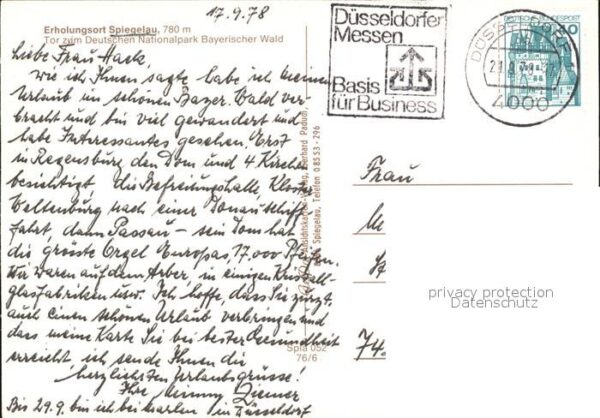 17.9.78
Erholungsort Spiegelau, 780 m
Tor zum Deutschen Nationalpark Bayerischer Wald
Liebe Frau Hack,
wie ich Ihnen sagte habe ich meinen
Urlaub im schönen Bayer. Wald ver-
bracht und bin viel gewandert und
habe Interessantes gesehen. Erst
in Regensburg den Dom und 4 Kirchen
besichtigt, die Befreiungshalle, Kloster
Weltenburg nach einer Donauschiff-
fahrt, dann Passau – sein Dom hat
die grösste Orgel Europas, 17.000 Pfeifen.
Wir waren auf dem Arber, in einigen Kristall-
glasfabriken usw. Ich hoffe, dass Sie zurzt.
auch einen schönen Urlaub verbringen und
dass meine Karte Sie bei bester Gesundheit
erreicht ich sende Ihnen die
herzlichsten Urlaubsgrüsse!
Ihre Ziemer
Bis 29.9. bin ich bei in Düsseldorf
Ansichtskarten-Verlag, Eberhard
Spiegelau, Telefon 0 85 53 - 296
Spia 052
76/6
Düsseldorfer
Messen
Basis
für Business
4000
Frau
74
privacy protection
Datenschutz